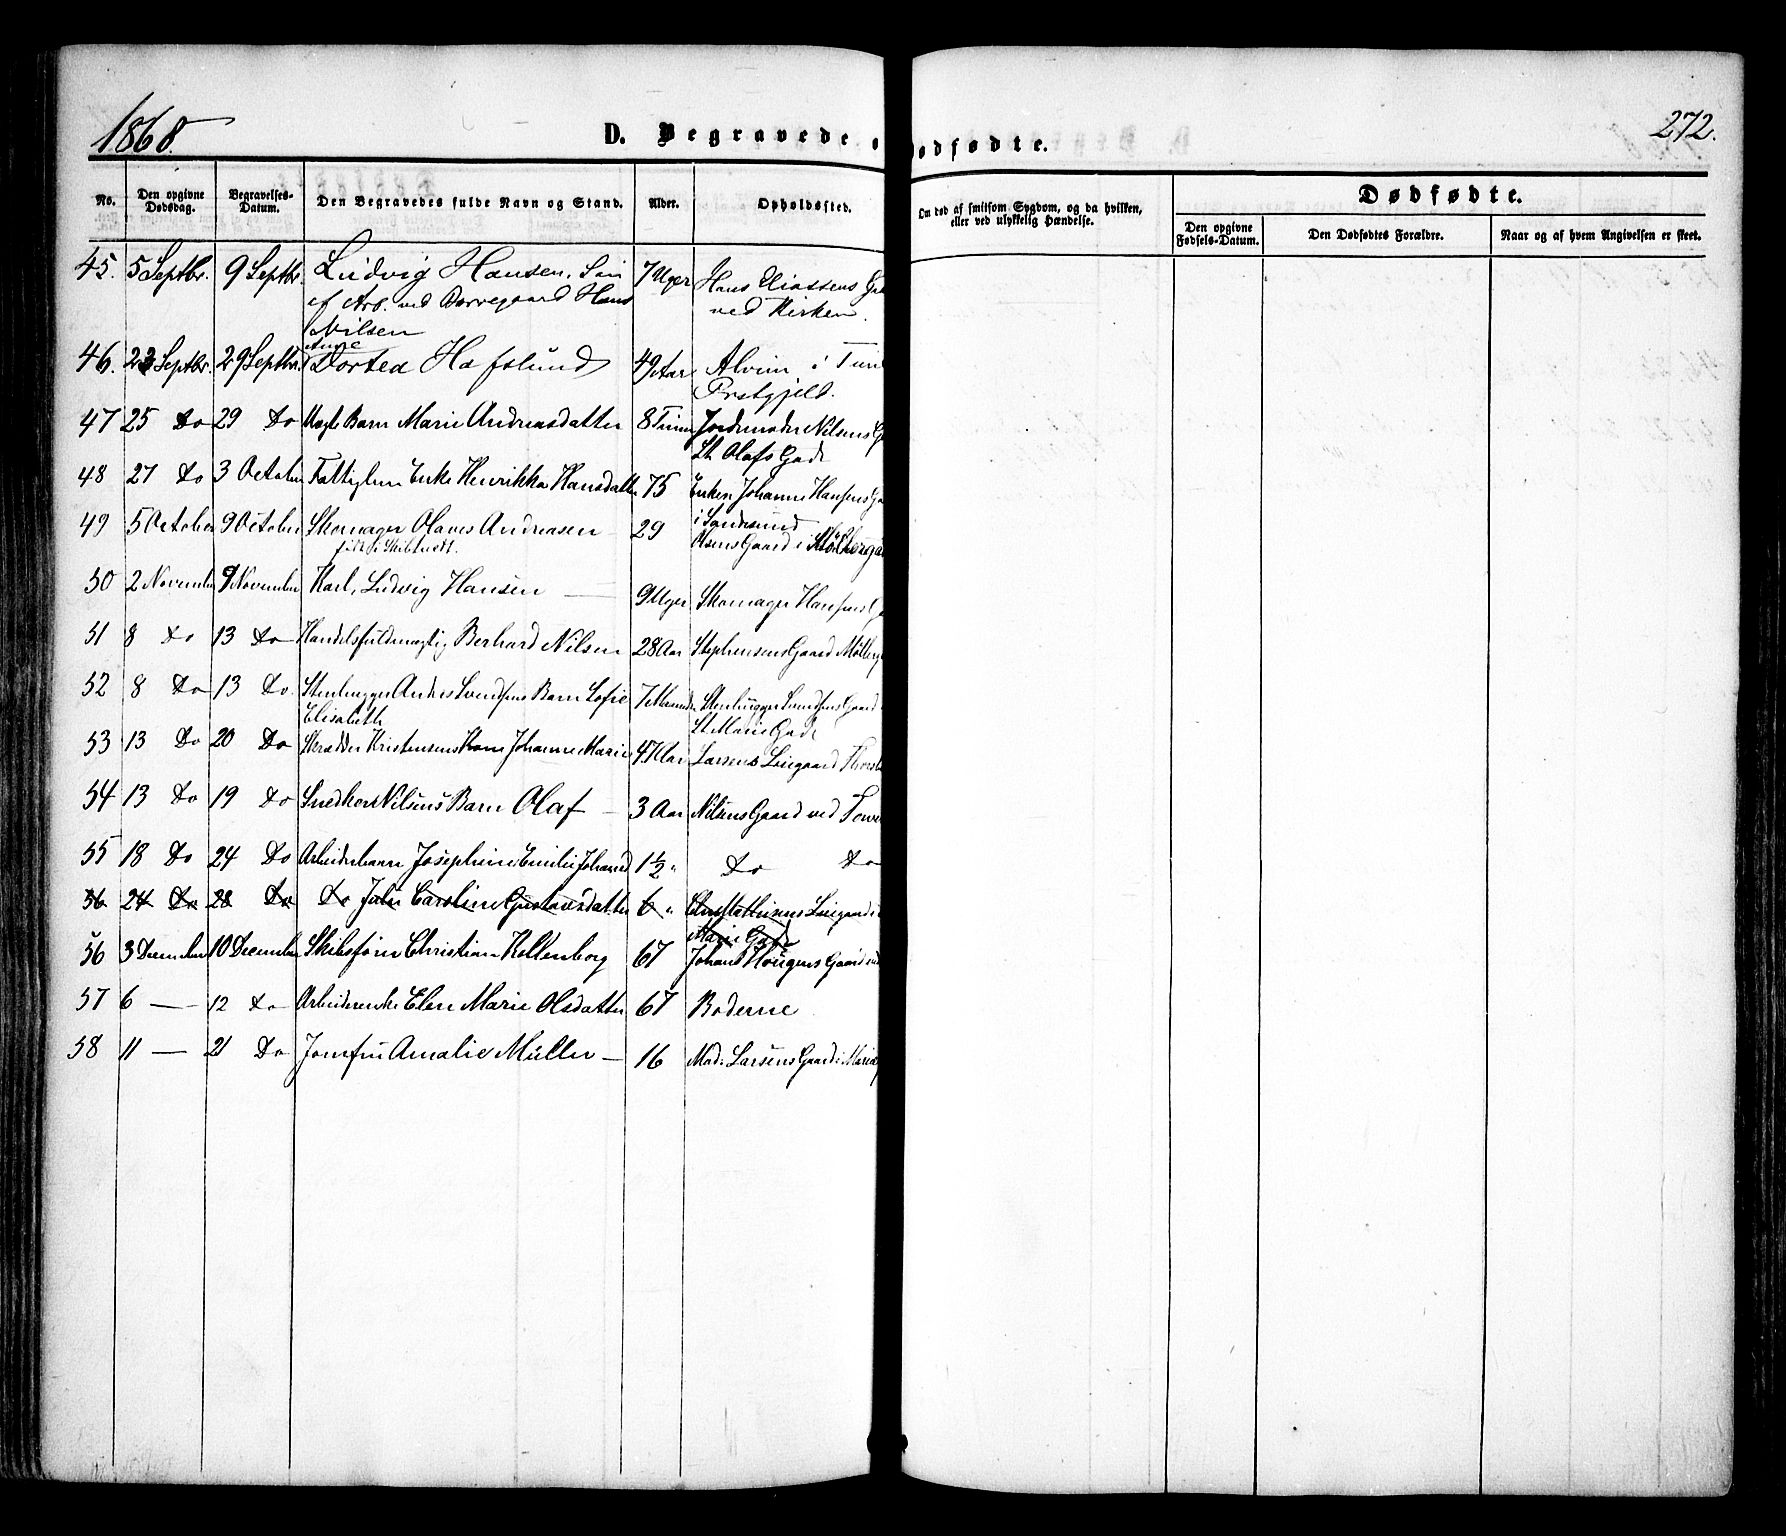 1868.
D. Begravede o
ødfødte.
272.
No.
Den opgivne Dødsdag.
Begravelses-Datum.
Den Begravedes fulde Navn og Stand.
Alder.
Opholdssted.
Om død af smitsom Sygdom, og da hvilken,
eller ved ulykkelig Hændelse.
Dødfødte.
Den opgivne Fødsels-Datum.
Den Dødfødtes Forældre.
Naar og af hvem Angivelsen er skeet.
45. 5 Septbr. 9 Septbr. Ludvig Hansen, Søn 7 Uger Hans Eliassens
af Arb. ved Borregaard Hans ved Kirken.
Nilsen
Aune
46. 23 Septbr. 29 Septbr. Dortea Hafslund 49 Aar Alvim i Tune
Prstgjeld.
47 25 Do 29 Do Barn Marie Andreasdatter 8 Timer Jordemoder Nilsens
St. Olafs Gade
48 27 Do 3 October Fattiglem Enke Henrikka Hansdatter 75 Enken Johanne Hansens
i Sandesund
49 5 October 9 October Skomager Olaves Andreasen 29 Olsens Gaard i
født i Skibtvedt.
50 2 November 9 November Karl, Ludvig Hansen — 9 Uger Skomager Hansens
51 8 Do 13 Do Handelsfuldmægtig Berhard Nilsen 28 Aar Stephensens Gaard
52 8 Do 13 Do. Stenhugger Andres Svendsens Barn Sofie 7 Stenhugger Svendsens Gaard
Elisabeth St Marie Gade
53 13 Do 20 Do Skrædder Kristensens Kone Johanne Marie 47 Aar Larsens Leiegaard
54 13 Do 19 Do Snedker Nilsens Barn Olaf — 3 Aar Nilsens Gaard ved
55 18 Do 24 Do Arbeiderbarn Josephine Emilie 1½ " Do Do
56 24 Do 28 Do Do Julie Caroline Gustavsdatter 6 " Leiegaard
Marie Gade
56 3 December 10 December Skibsfører Christian Kollenborg 67 Johans Hougens Gaard
57 6 — 12 Do Arbeiderenke Elen Marie Olsdatter 67 Boderne
58 11 — 21 Do Jomfru Amalie Müller — 16 Mad. Larsens Gaard i